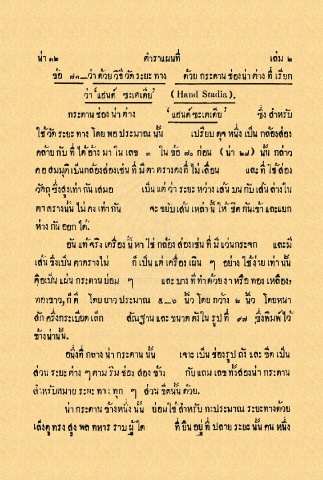 น่า ๓๒ ตำราแผนที่ เล่ม ๒
ข้อ ๗๓—ว่า ด้วย วิธี วัด ระยะ ทาง ด้วย กระดาน ช่อง น่า ต่าง ที่ เรียก
ว่า "แฮนด์ ซะเตเดีย" (Hand Stadia).
กระดาน ช่อง น่า ต่าง "แฮนด์ ซะเตเดีย" ซึ่ง สำหรับ
ใช้ วัด ระยะ ทาง โดย พอ ประมาณ นั้น เปรียบ ดุจ หนึ่ง เป็น กล้อง ส่อง
คล้าย กับ ที่ ได้ อ้าง มา ใน เลข ๓ ใน ข้อ ๗๐ ก่อน (น่า ๒๗) นั้น กล่าว
คือ สมมุติ เป็น กล้อง ส่อง เช่น ที่ มี ตา ตาราง คง ที่ ไม่ เลื่อน และ ที่ ใช้ ส่อง
วัตถุ ซึ่ง สูง เท่า กัน เสมอ เป็น แต่ ว่า ระยะ หว่าง เส้น บน กับ เส้น ล่าง ใน
ตา ตาราง นั้น ไม่ คง เท่า กัน จะ ขยับ เส้น เหล่า นี้ ให้ ชิด กัน เข้า และ แยก
ห่าง กัน ออก ได้.
อัน แท้ จริง เครื่อง นี้ หา ใช่ กล้อง ส่อง เช่น ที่ มี แว่น กระจก และ มี
เส้น ซึ่ง เป็น ตา ตาราง ไม่ ก็ เป็น แต่ เครื่อง เฉิน ๆ อย่าง ใช้ ง่าย เท่า นั้น
คือ เป็น แผ่น กระดาน ย่อม ๆ และ บาง ที่ ทำ ด้วย งา หรือ ทอง เหลือง
ทองขาว, ก็ ดี โดย ยาว ประมาณ ๕—๖ นิ้ว โดย กว้าง ๒ นิ้ว โดย หนา
สัก ครึ่ง กระเบียด เล็ก สัณฐาน และ ขนาด ดัง ใน รูป ที่ ๑๗ ซึ่ง พิมพ์ ไว้
ข้าง น่า นั้น.
อนึ่ง ที่ กลาง น่า กระดาน นั้น เจาะ เป็น ช่อง รูป ถัง และ ขีด เป็น
ส่วน ระยะ ต่าง ๆ ตาม ริม ช่อง สอง ข้าง กับ แถม เลข ทั้ง สอง น่า กระดาน
สำหรับ หมาย ระยะ ทาง ทุก ๆ ส่วน ขีด นั้น ด้วย.
น่า กระดาน ข้าง หนึ่ง นั้น ย่อม ใช้ สำหรับ กะ ประมาณ ระยะ ทาง ด้วย
เล็ง ดู ทรง สูง พล ทหาร ราบ ผู้ ใด ที่ ยืน อยู่ ที่ ปลาย ระยะ นั้น คน หนึ่ง